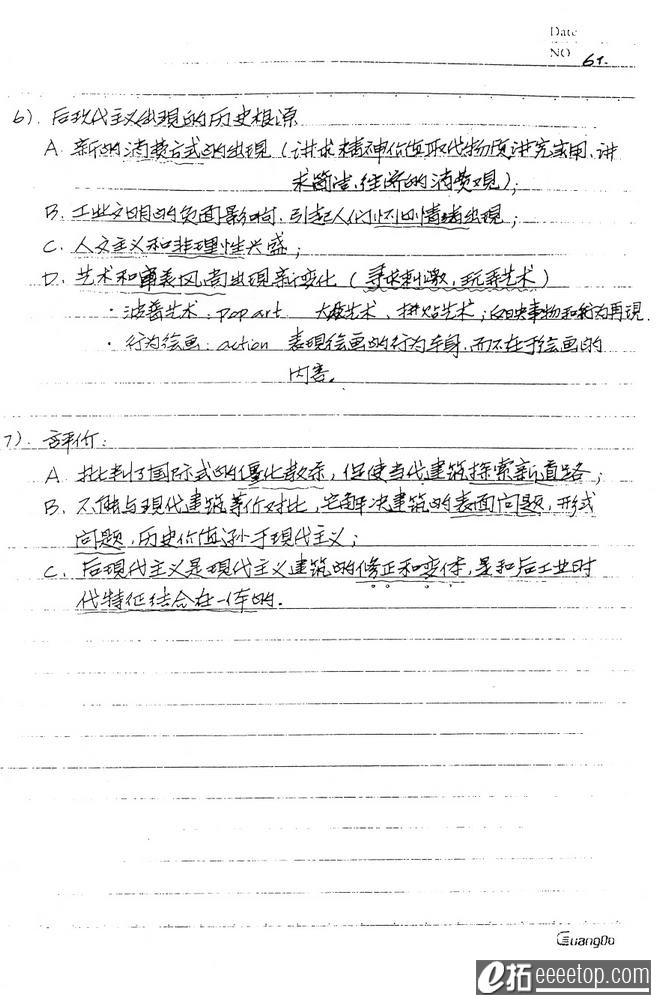 Date
NO 61.
6). 后现代主义出现的历史根源
A. 新的消费方式的出现 (讲求精神价值取代物质讲究实用、讲
求简洁、经济的消费观);
B. 工业文明的负面影响, 引起人们怀旧情绪出现;
C. 人文主义和非理性兴盛;
D. 艺术和审美风尚出现新变化 (寻求刺激, 玩乐艺术)
· 波普艺术: pop art 大众艺术、拼贴艺术; 反映事物和行为再现.
· 行为绘画: action 表现绘画的行为本身, 而不在于绘画的
内容.
7). 评价:
A. 批判了国际式的僵化教条, 促使当代建筑探索新道路;
B. 不能与现代建筑等价对比, 它解决建筑的表面问题, 形式
问题, 历史价值小于现代主义;
C. 后现代主义是现代主义建筑的修正和变体, 是和后工业时
代特征结合在一体的.
GuangBo
e拓 eeeetop.com